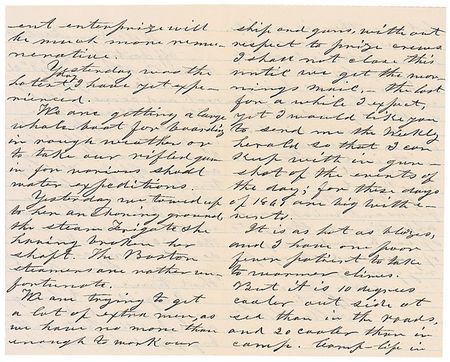 ent enterprize will
be much more remu-
nerative.
Yesterday was the
hotest day I have yet expe-
rienced.
We are getting a large
whale boat for boarding
in rough weather or
to take our rifled gun
in for various shoal
water expeditions.
Yesterday we towed up
to her anchoring ground
the steam Frigate she
having broken her
shaft. The Boston
steamers are rather un-
fortunate.
We are trying to get
a lot of extra men, as
we have no more than
enough to work our
ship and guns, without
respect to prize crews.
I shall not close this
until we get the mor-
nings mail, – the last
for a while I expect,
yet I would like you
to send me the Weekly
herald so that I can
keep within gun-
shot of the events of
the day; for these days
of 1861 are big with e-
vents.
It is as hot as blazes,
and I have one poor
fever patient to take
to warmer climes.
But it is 10 degrees
cooler out side at
sea than in the roads,
and 20 cooler than in
camp. Camp-life is